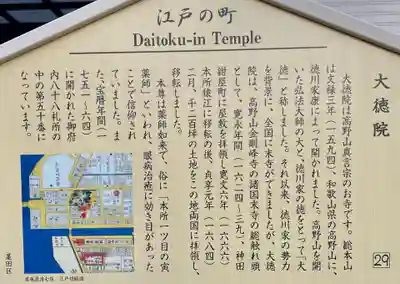 江戸の町
Daitoku-in Temple
大徳院
大徳院は高野山真言宗のお寺です。総本山
は文禄三年(一五九四)、和歌山県の高野山に、
徳川家康によって開かれました。高野山を開
いた弘法大師の大と、徳川家の徳をとって「大
徳」と称しました。それ以来、徳川家の勢力
を背景に、全国に末寺ができましたが、大徳
院は、高野山金剛峰寺の諸国末寺の総触れ頭
として、寛永年間(一六二四〜三六)、神田
紺屋町に屋敷を拝領し寛文六年(一六六六)
本所猿江に移転の後、貞享元年(一六八四)
二月、千二百坪の土地をこの地両国に拝領し、
移転しました。
本尊は薬師如来で、俗に「本所一ツ目の寅
薬師」といわれ、眼病治癒に効き目があった
ことで信仰され
ていました。ま
た、宝暦年間(一
七五一〜六四)
に開かれた御府
内八十八札所の
中の第五十番に
なっています。
墨田区
29